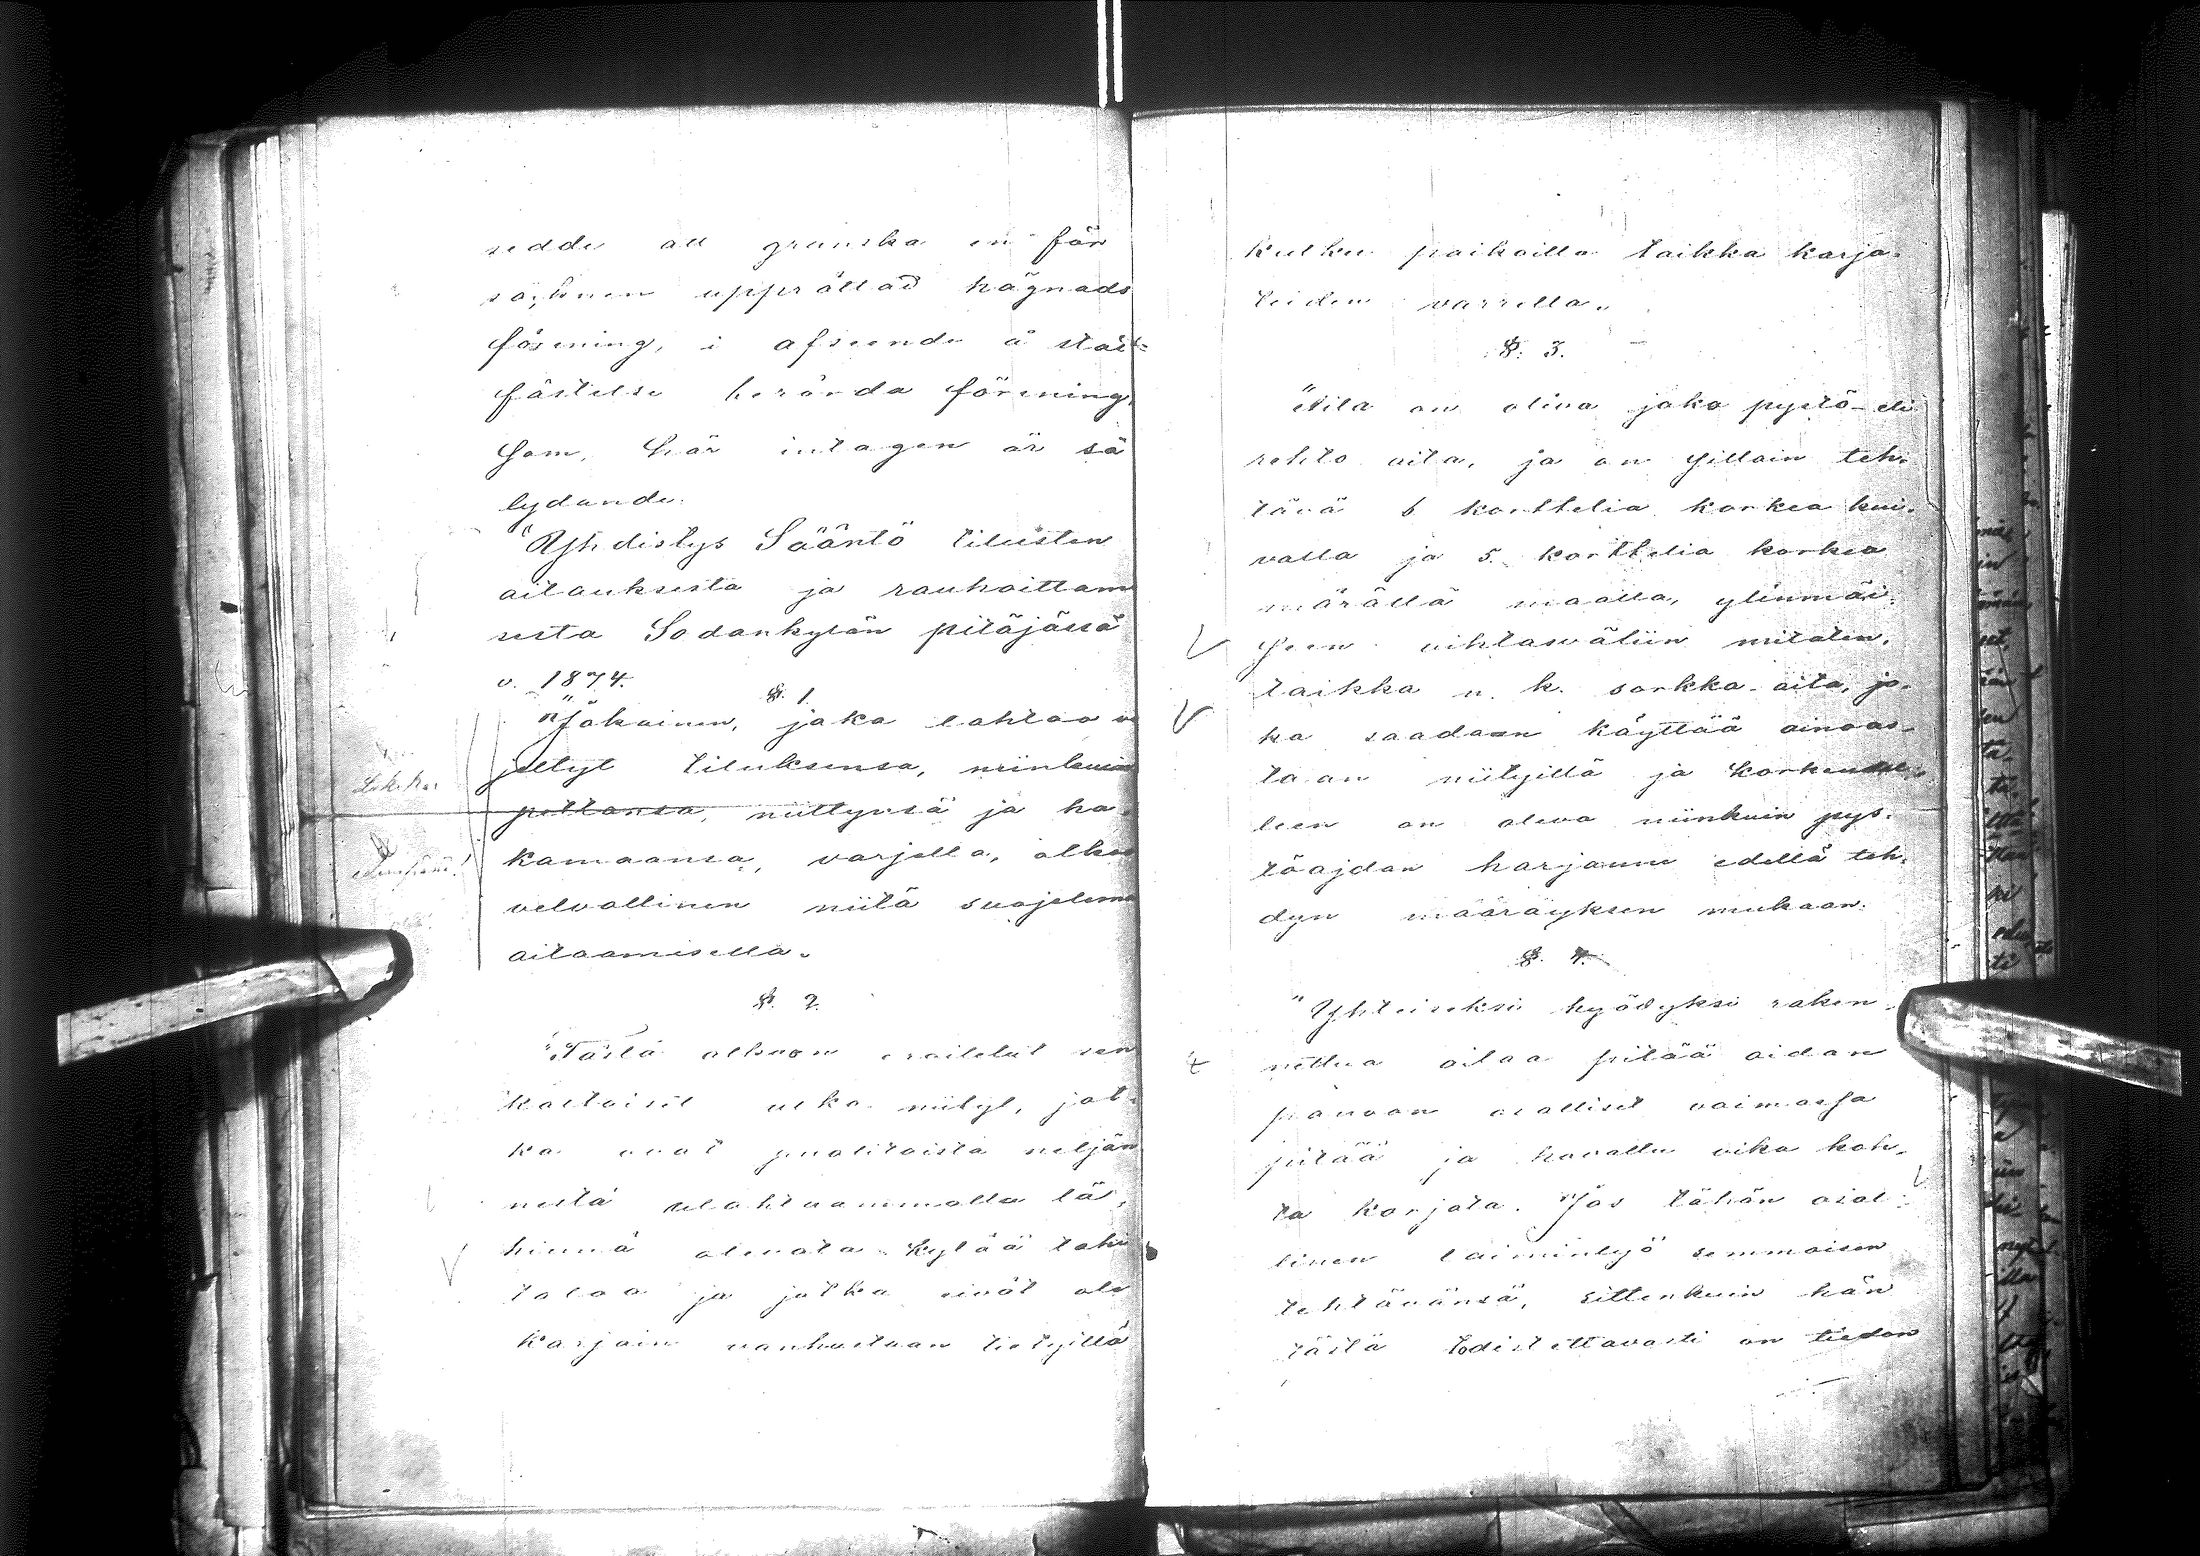 sedde att granska en för
socknen upprättad hägnads
förening, i afseende å stad-
fästelse berörda förening,
som, här intagen är så
lydande:
"Yhdistys Sääntö tilusten
aitauksesta ja rauhoittami
sesta Sodankylän pitäjässä
v. 1874.
§. 1.
"Jokainen, joka tahtoo vi
jellyt tiluksensa, niinkuin
peltonsa, niittynsä ja ha-
kamaansa, varjella, olkoo
velvollinen niitä suojelema
aitaamisella.
§. 2.
"Tästä olkoon eroitetut sen
kaltaiset ulko niityt, jot-
ka ovat puolitoista neljän
nestä ulohtaammalla lä-
hinnä olevata kylää tahi
taloa ja jotka eivät ole
karjain vanhastaan tietyillä
kulku paikoilla taikka karja-
teiden varrella.
§. 3.
"Aita on oleva joko pystö- eli
rehto aita, ja on silloin teh-
tävä 6 korttelia korkea kui-
valla ja 5. korttelia korkea
märällä maalla, ylimmäi-
seen vihtasväliin mitaten,
taikka n. k. sorkka-aita, jo-
ka saadaan käyttää ainoas-
taan niityillä ja korkeudel-
leen on oleva niinkuin pys-
töajdan harjanne edellä teh-
dyn määräyksen mukaan.
§. 4.
"Yhteiseksi hyödyksi raken-
nettua aitaa pitää aidan
panoon osalliset voimassa
pitää ja havattu vika koh-
ta korjata. Jos tähän osal-
linen laiminlyö semmoisen
tehtävänsä, sittenkuin hän
tästä todistettavasti on tiedon